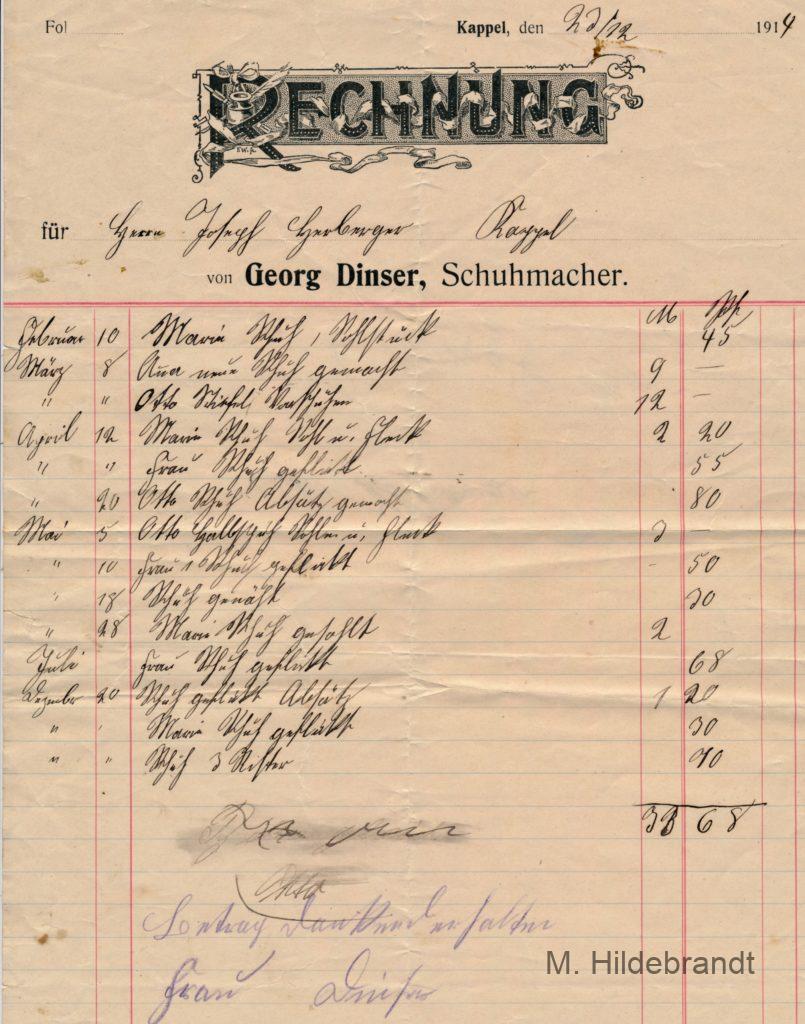 Fol
Kappel, den 23/12 1914
RECHNUNG
für Herrn Joseph Herberger Kappel
von Georg Dinser, Schuhmacher.
M Pf
Februar 10 Marie Schuh 1 Sohlstück 45
März 8 Anna neue Schuh gemacht 9 —
" " Otto Stiefel Vorschuhen 12 —
April 12 Marie Schuh Sohl u. Fleck 2 20
" " Frau Schuh geflickt 55
" 20 Otto Schuh Absätz gemacht 80
Mai 5 Otto Halbschuh Sohlen u. Fleck 3 -
" 10 Frau 1 Schuh geflickt - 50
" 18 Schuh genäht 30
" 28 Marie Schuh gesohlt 2
Juli Frau Schuh geflickt 68
Dezember 20 Schuh geflickt Absätz 1 20
" " Marie Schuh geflickt 30
" " Schuh 3 Rister 70
33 68
Otto
Betrag dankend erhalten
Frau Dinser
M. Hildebrandt